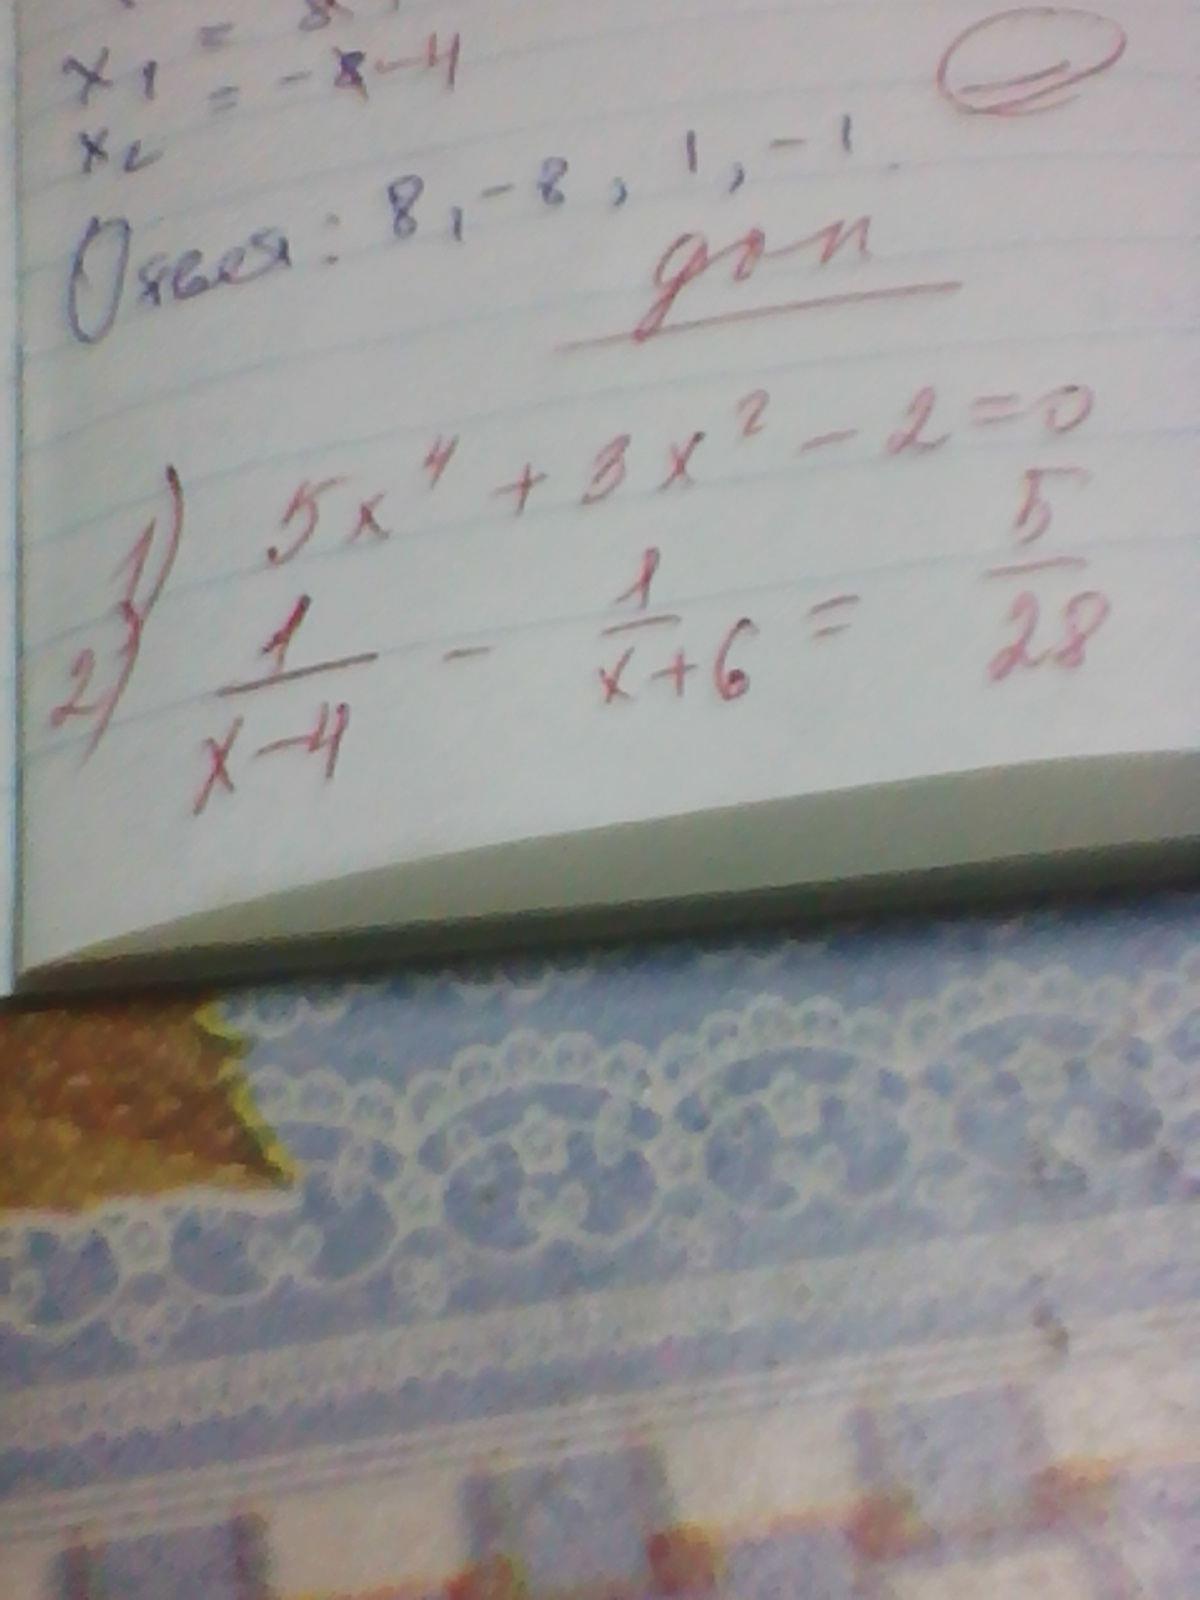 x₁ = 8
x₂ = -4
Ответ: 8, -8, 1, -1.
доп
1) 5x⁴ + 3x² - 2 = 0
2) 1/(x-4) - 1/(x+6) = 5/28